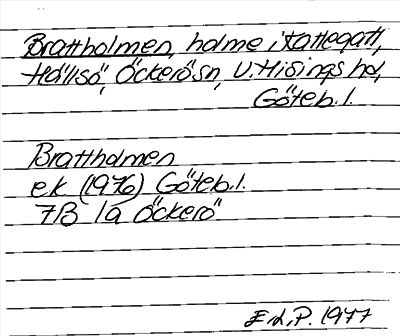 Brattholmen, holme i Kattegatt,
Hällsö, Öckerö sn, V. Hisings hd,
Göteb. l.
Brattholmen
ek (1976) Göteb. l.
7B 1a Öckerö
E rd, P. 1977